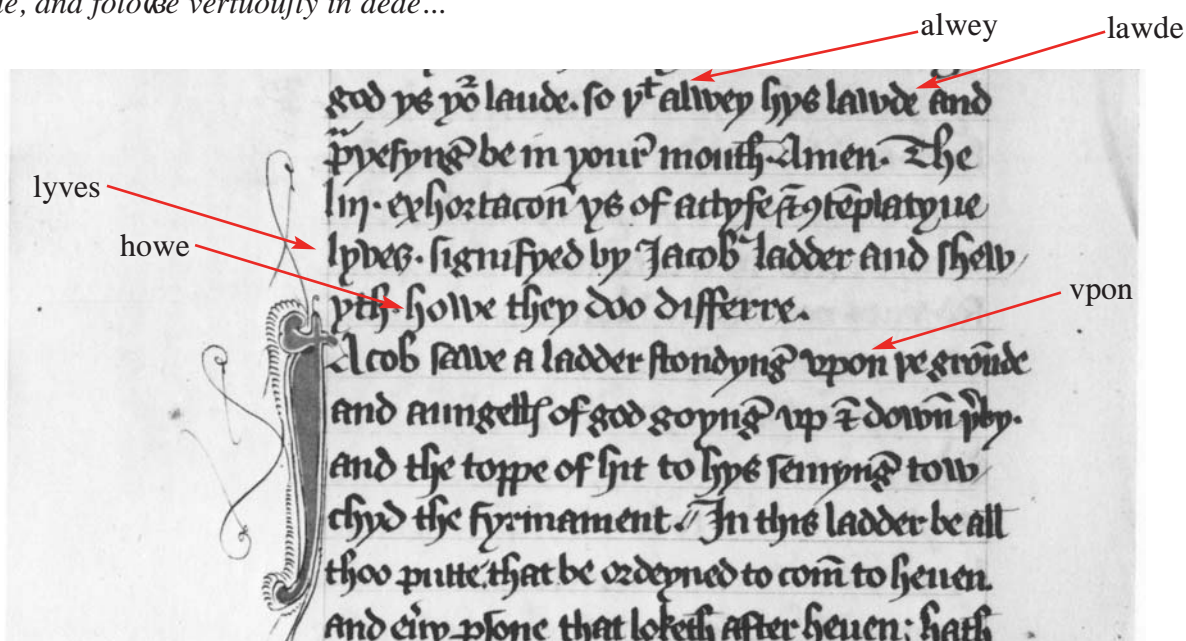 and folowe vertuously in dede...
alwey
lawde
god ys yoͬ laude. so yͭ alwey hys lawde and
preysyng be in your mouth. Amen. The
iiij. exhortacon ys of actyfe & 9tēplatyue
lyves
lyves. signifyed by Jacob ladder and shew
howe
yth. howe they doo differre.
vpon
Jacob sawe a ladder stondyng vpon ye groūde
and aungellꝭ of god goyng up & down þby.
and the toppe of hit to hys semyng tow
chyd the fyrmament. // In this ladder be all
thoo that be ordeyned to com̄ to heuen.
and eu'y psone that loketh after heuen; hath